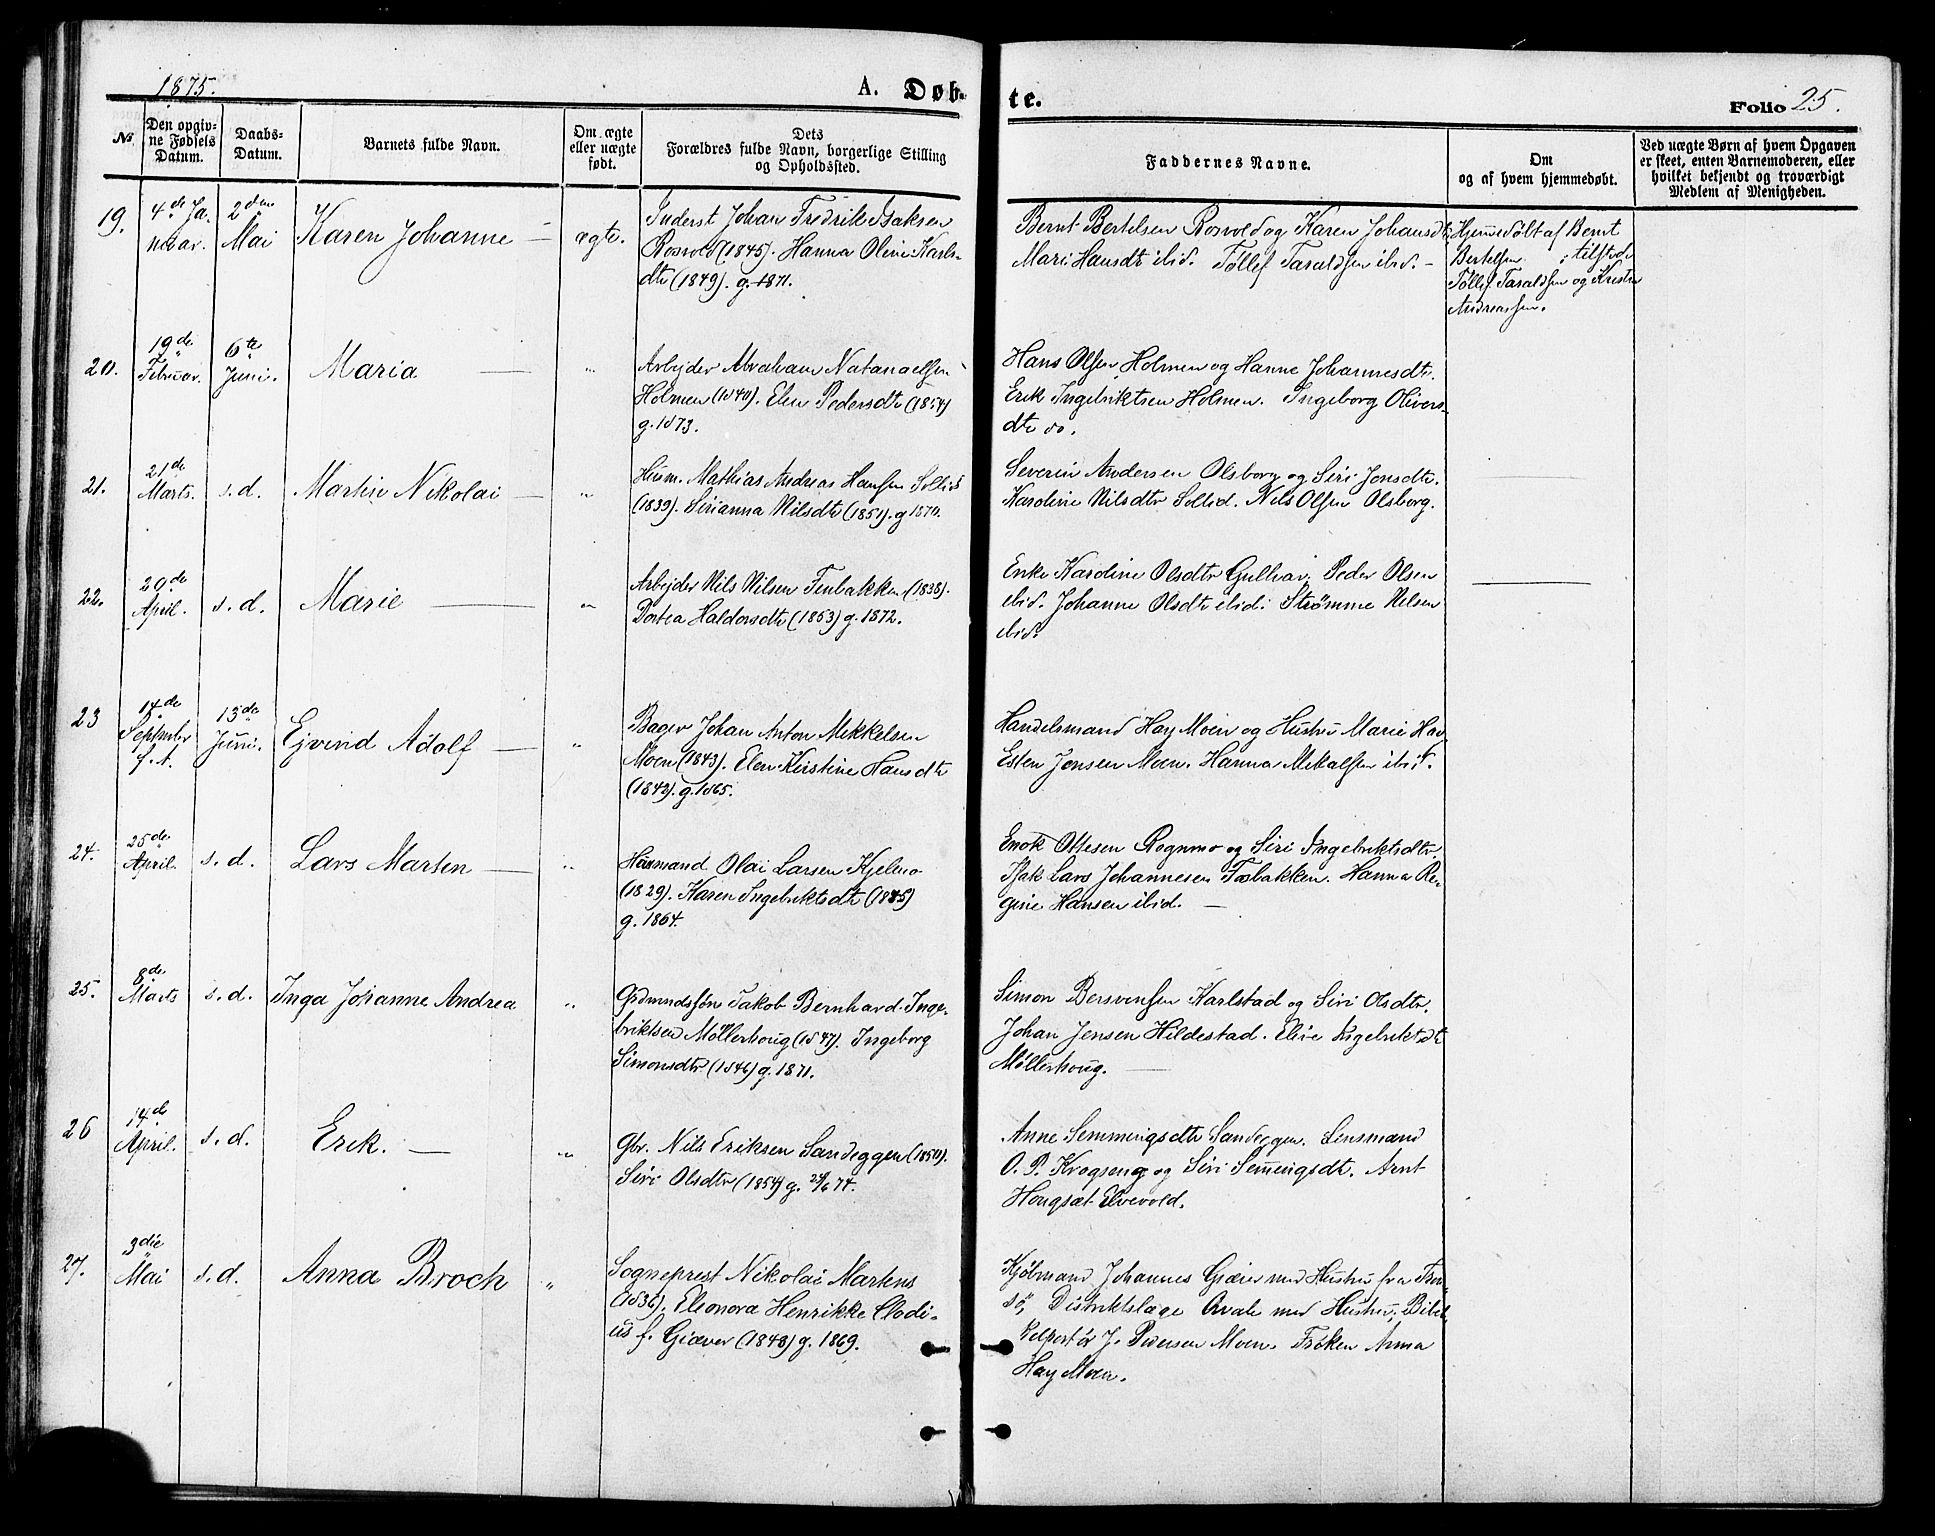 1875.
A. Døb-
te.
Folio 25.
No
Den opgiv-
ne Fødsels
Datum.
Daabs-
Datum.
Barnets fulde Navn.
Om ægte
eller uægte
født.
Dets
Forældres fulde Navn, borgerlige Stilling
og Opholdssted.
Faddernes Navne.
Om
og af hvem hjemmedøbt.
Ved uægte Børn af hvem Opgaven
er skeet, enten Barnemoderen, eller
hvilket bekjendt og troværdigt
Medlem af Menigheden.
19.
4de Ja-
nuar.
2den
Mai
Karen Johanne —
ægte.
Inderst Johan Fredrik Isaksen
Rosvold (1845). Hanna Oline Karls-
dtr (1849). g. 1871.
Bernt Bertelsen Rosvold og Karen Johansdtr
Mari Hansdtr ibid. Tøllef Taraldsen ibid. —
Hjemmedøbt af Bernt
Bertelsen ; tilstede
Tøllef Taraldsen og
Andreassen.
20.
19de
Februar.
6te
Juni.
Maria —
"
Arbejder Abraham Natanaelsen
Holmen (1840). Elen Pedersdtr (1854)
g. 1873.
Hans Olsen Holmen og Hanne Johannesdtr.
Erik Ingebriktsen Holmen. Ingeborg Olivers-
dtr do.
21.
21de
Marts.
s. d.
Martin Nikolai —
"
Husm. Mathias Andreas Hansen Sollid
(1839). Sirianna Nilsdtr (1851). g 1870.
Severin Andersen Olsborg og Siri Jonsdtr.
Karoline Nilsdtr Sollid. Nils Olsen Olsborg.
22.
20de
April.
s. d.
Marie —
"
Arbejder Nils Nilsen Finbakken (1838).
Dortea Haldorsdtr (1853) g. 1872.
Enke Karoline Olsdtr Gullhav. Peder Olsen
ibid. Johanne Olsdtr ibid. Strømme Nilsen
ibid.
23
14de
September
f. A.
13de
Juni.
Ejvind Adolf —
"
Bager Johan Anton Mikkelsen
Moen (1843). Elen Kirstine Hansdtr
(1842). g. 1865.
Handelsmand Hay Moen og Hustru Marie Hay
Esten Jensen Moen. Hanna Mikalsen ibid.
24.
25de
April.
s. d.
Lars Martin —
"
Husmand Olai Larsen Kjelmo
(1829). Karen Ingebriktsdtr (1845)
g. 1864.
Enok Ottesen Rognmo og Siri Ingebriktsdtr.
Isak Lars Johannesen Fosbakken. Hanna Re-
gine Hansen ibid. —
25.
8de
Marts
s. d.
Inga Johanne Andrea
"
Grdmandssøn Jakob Bernhard Inge-
briktsen Møllerhoug (1847). Ingeborg
Simonsdtr (1846) g. 1871.
Simon Bersvensen Karlstad og Siri Olsdtr.
Johan Jensen Hildestad. Elise Ingebriktsdtr
Møllerhoug. —
26
14de
April.
s. d.
Erik. —
"
Gbr. Nils Eriksen Sandeggen (1850).
Siri Olsdtr (1854) g. 24/6 74.
Anne Semmingsdtr Sandeggen. Lensmand
O. P. Krogseng og Siri Semmingsdtr. Arnt
Hougsæt Elvevold.
27.
3die
Mai
s. d.
Anna Broch
"
Sogneprest Nikolai Martens
(1836). Eleonora Henrikke Clodi-
us f. Giæver (1848) g. 1869.
Kjøbmand Johannes Giæver med Hustru fra Trom-
sø, Distriktslæge Qvale med Hustru, Bibel-
kolportör J. Pedersen Moen. Frøken Anna
Hay Moen.